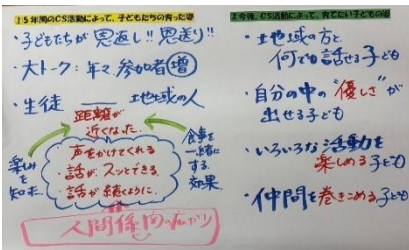 1.5年間のCS活動によって、子どもたちの育った姿
・子どもたちが恩返し!!恩送り!!
・大トーク：年々参加者増
・生徒 ― 地域の人
距離が
近くなった。
声をかけてくれる
・話がスッとできる
・話が続くように。
楽しみ
を知れた
食事を
一緒に
する
効果。
人間係の広がり
2.今後、CS活動によって、育てたい子どもの姿
・地域の方と
何でも話せる子ども
・自分の中の“優しさ”が
出せる子ども
・いろいろな活動を
楽しめる子ども
・仲間を巻きこめる子ども